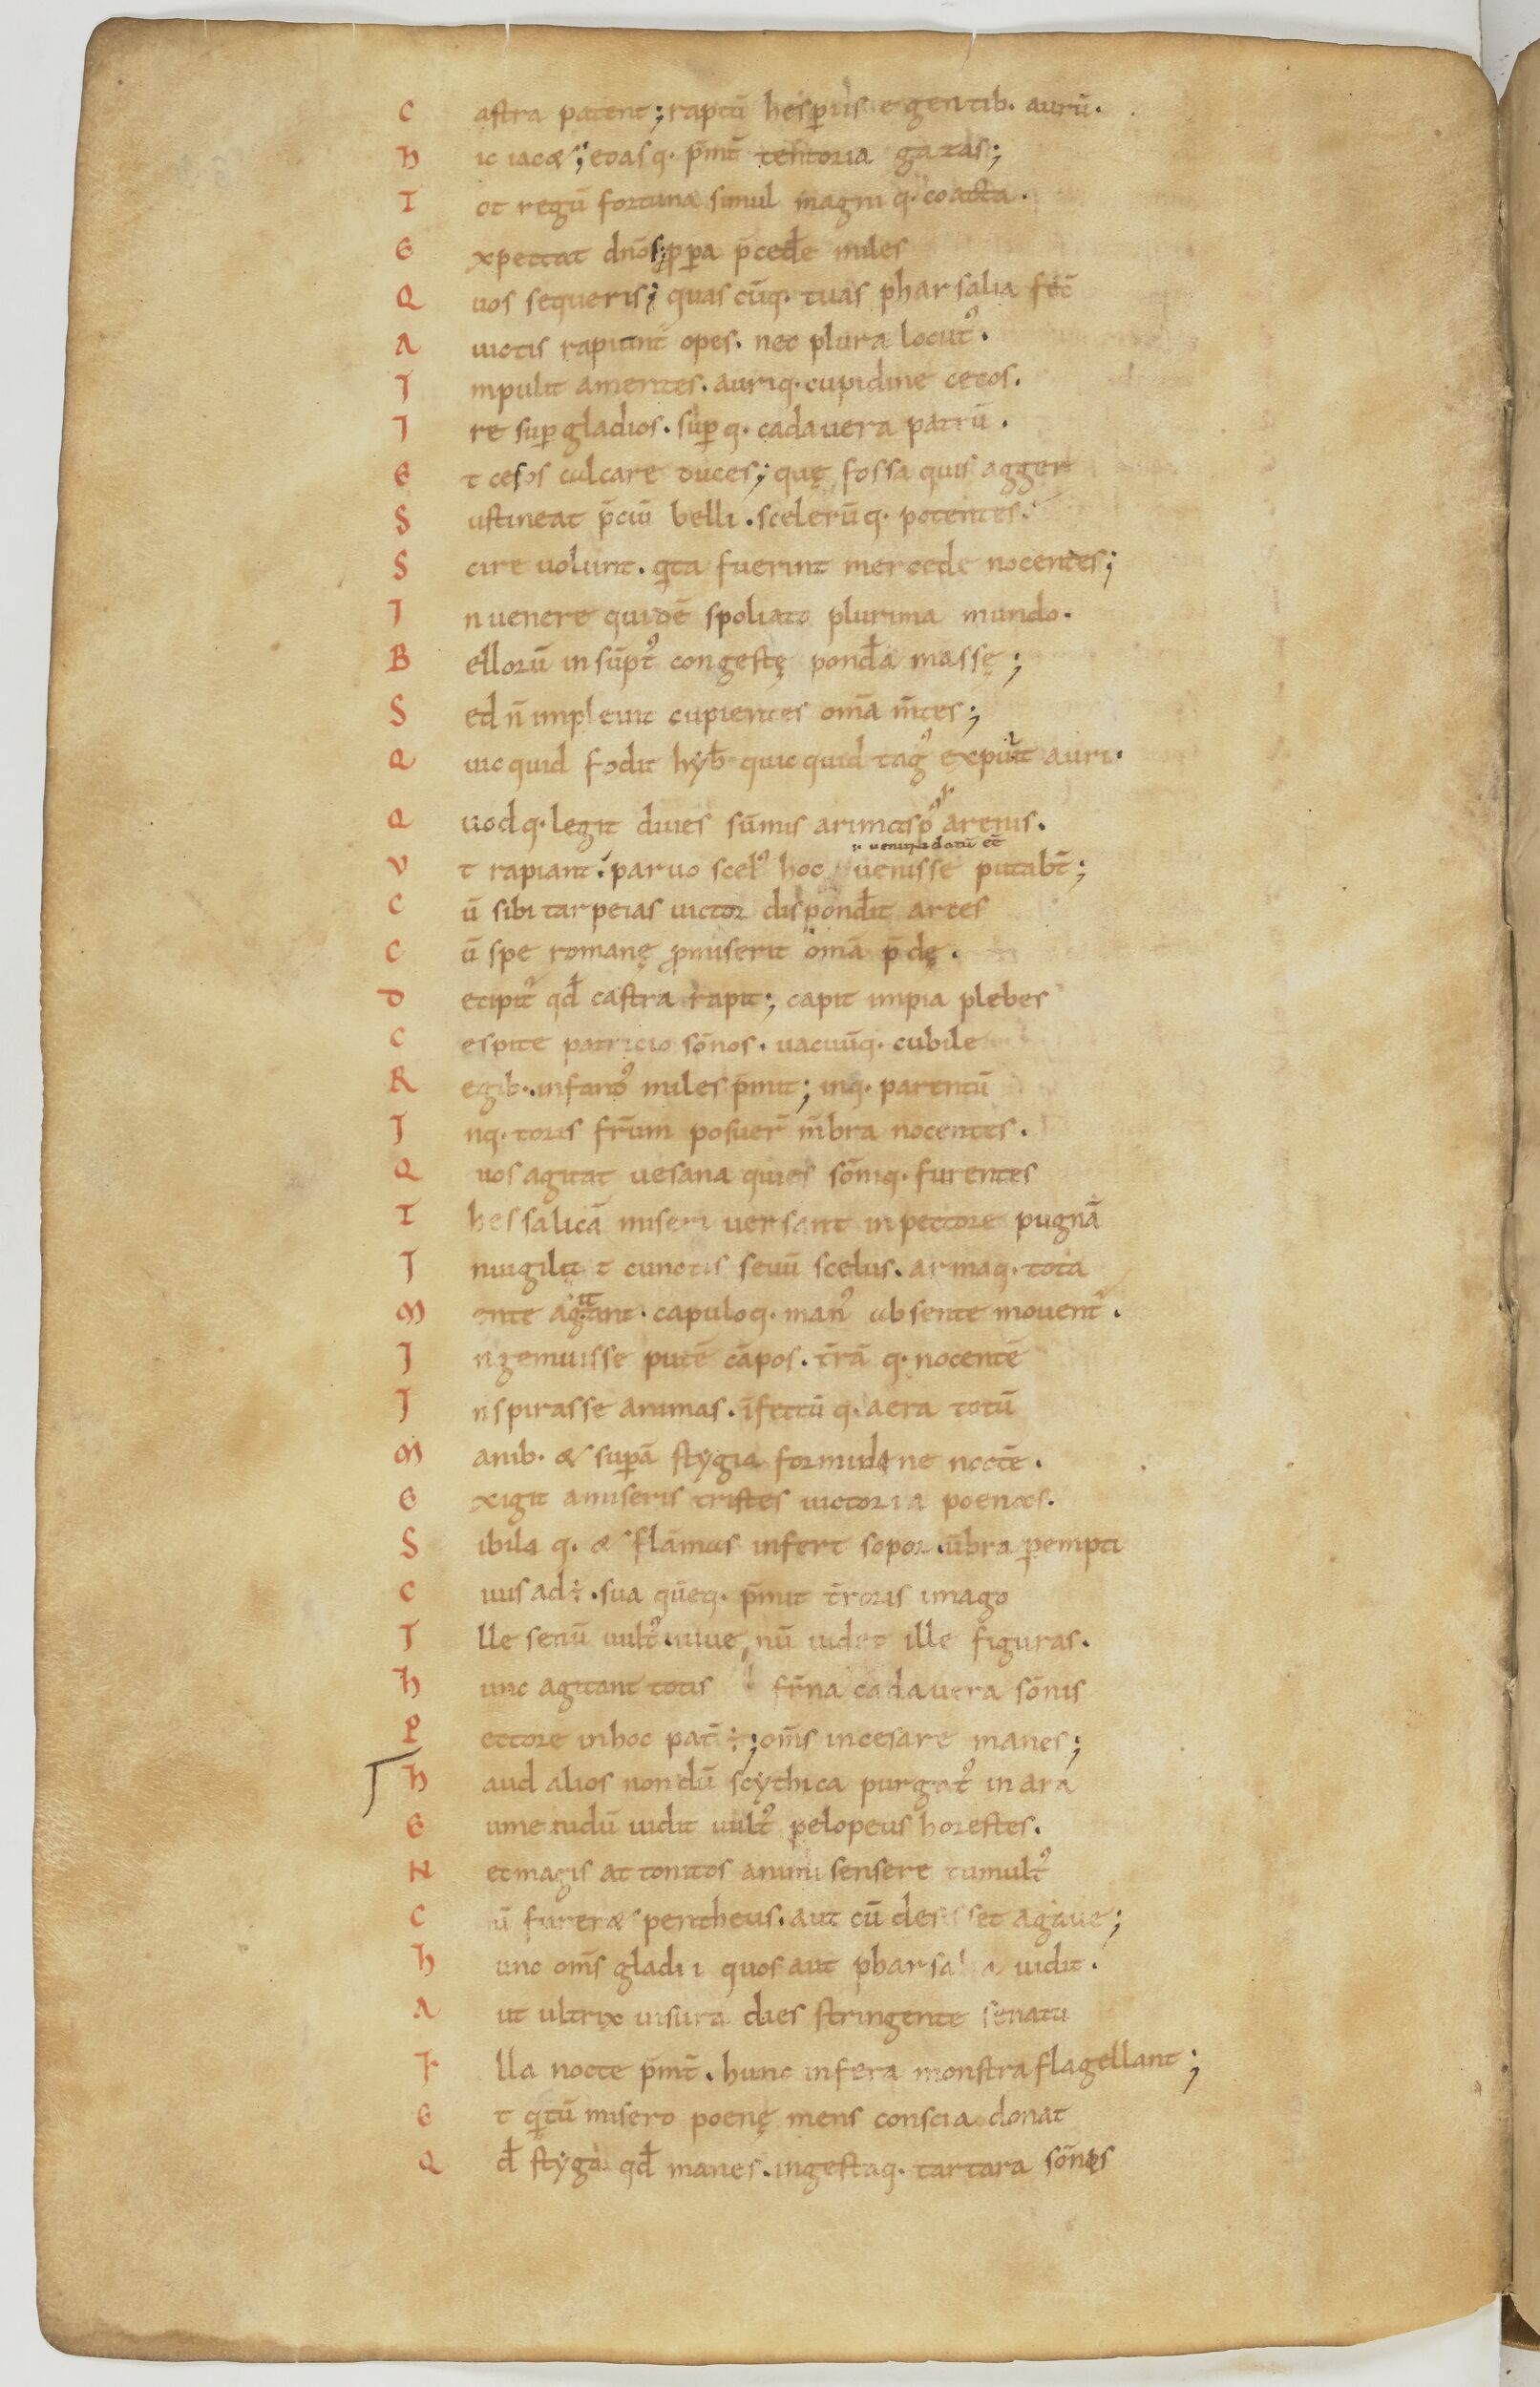 C astra patent; raptū hesperiis e gentib. aurū.
H ic iacet; eoasq. p̄mt̄ tentoria gazas;
T ot regū fortuna simul magniq. coacta.
E xpectat dn̄os; ꝓpera p̄ced̄e miles
Q uos sequeris; quascūq. tuas pharsalia fec̄
A uictis rapiunt̄ opes. nec plura locut᾿.
I mpulit amentes. auriq. cupidine cecos.
I re suꝑ gladios. suꝑq. cadauera patrū.
E t cesos calcare duces; quę fossa quis agger
S ustineat p̄ciū belli. scelerūq. potentes.
S cire uolunt. qͣta fuerint mercede nocentes;
I nuenere quidē spoliato plurima mundo.
B ellorū in sūpt᾿ congestę pond̄a massę;
S ed n̄ impleuit cupientes om̄a m̄tes;
Q uicquid fodit hyb̄ quicquid tag᾿ expuit auri.
Q uodq. legit diues sūmis arimasp᾿ arenis.
uenundatū eē
V t rapiant. paruo scel᾿ hoc uenisse putabt̄;
C ū sibi tarpeias uictor dispond̄it arces
C ū spe romanę ꝓmiserit om̄a p̄dę.
D ecipit̄ qd̄ castra rapit; capit impia plebes
C espite patricio sōnos. uacuūq. cubile
R egib. infand᾿ miles p̄mit; inq. parentū
I nq. toris fr̄um posuer̄ m̄bra nocentes.
Q uos agitat uesana quies sōniq. furentes
T hessalicā miseri uersant in pectore pugnā
I nuigilat cunctis seuū scelus. armaq. tota
it
M ente agitant. capuloq. man᾿ absente mouent̄.
I ngemuisse putē cāpos. t̄rā q. nocentē
I nspirasse animas. īfectū q. aera totū
M anib. & suꝑā stygia formidine noctē.
E xigit a miseris tristes uictoria poenas.
S ibila q. & flāmas infert sopor. ūbra ꝑempti
C iuis ad÷. sua quēq. p̄mit t̄roris imago
I lle senū uult᾿. iuuenū uidet ille figuras.
H unc agitant totis fr̄na cadauera sōnis
P ectore in hoc pat̄ ÷; om̄s in cesare manes;
H aud alios nondū scythica purgat᾿ in ara
E umenidū uidit uult᾿ pelopeus horestes.
N ec magis attonitos animi sensere tumult᾿
C ū furer& pentheus. aut cū desisset agaue;
H unc om̄s gladii quos aut pharsalia uidit.
A ut ultrix uisura dies stringente senatu
I lla nocte p̄mt̄. hunc infera monstra flagellant;
E t qͣtū misero poenę mens conscia donat
Q d̄ styga qd̄ manes. ingestaq. tartara sōnis